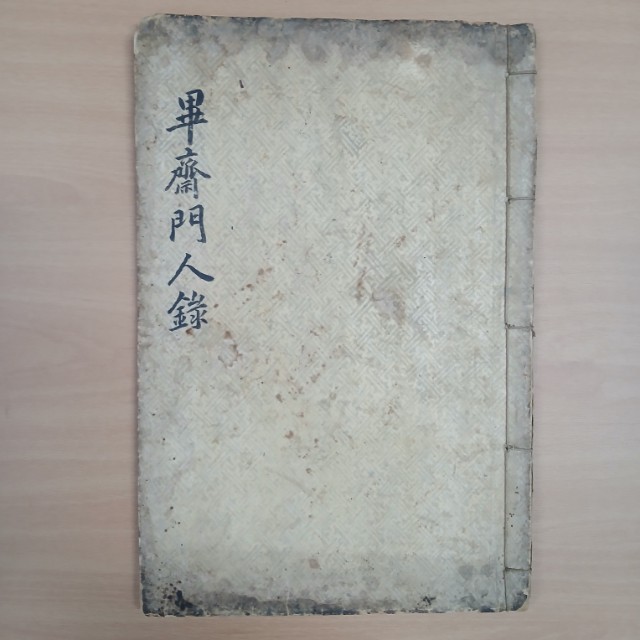 畢齋門人錄